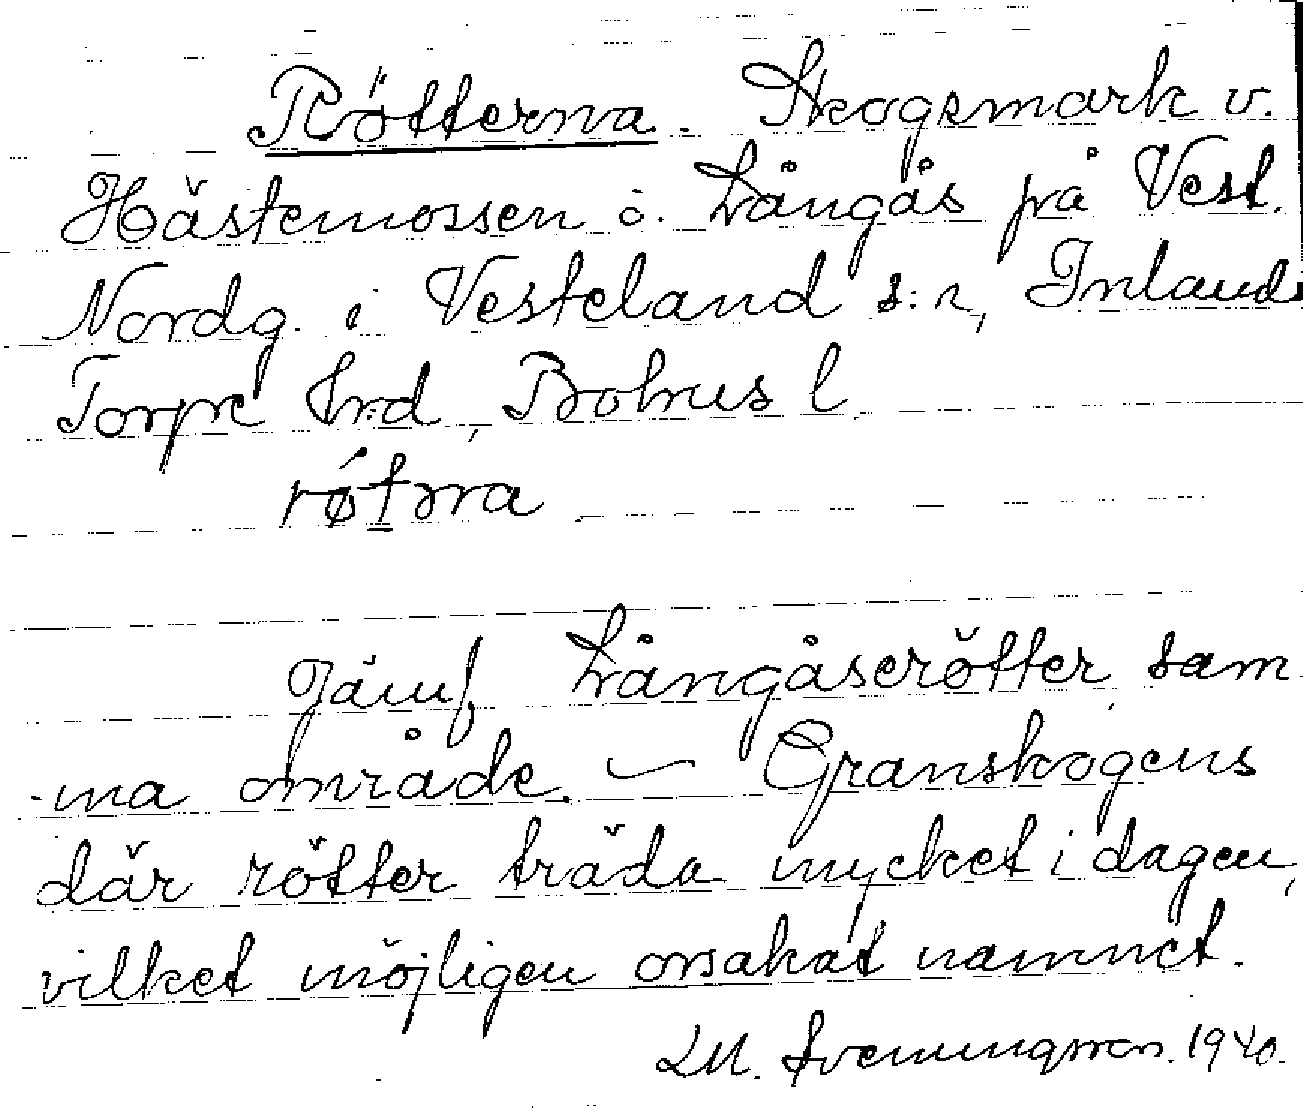 Rötterna. Skogsmark v.
Hästemossen o. Långås på Vest.
Nordg. i Vesteland s:n, Inlands
Torpe hrd, Bohus l
Jämf Långåserötter, sam
-ma område. — Granskogens
där rötter träda mycket i dagen,
vilket möjligen orsakat namnet.
LM. Svenungsson. 1940.